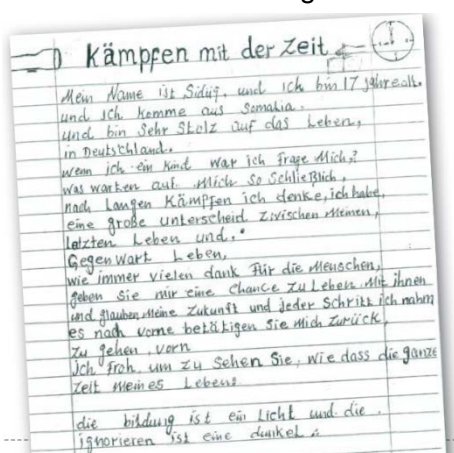 Kämpfen mit der Zeit
Mein Name ist Sidiig, und ich bin 17 Jahrealt.
und ich komme aus Somalia.
und bin Sehr Stolz auf das Leben,
in Deutschland.
wenn ich ein Kind war ich frage Mich,?
was warten auf Mich so Schließlich,
nach Langen Kämpfen ich denke, ich habe,
eine große unterscheid zwischen Meinen,
letzten Leben und.
Gegenwart Leben,
wie immer vielen dank Für die Menschen,
geben Sie mir eine Chance zu Leben Mit ihnen
und glauben Meine Zukunft und jeder Schritt ich nahm
es nach vorne betätigen Sie Mich Zurück,
zu gehen, vorn
Ich froh, um zu Sehen Sie, wie dass die ganze
Zeit Meines Lebens
die bildung ist ein Licht und die
ignorieren ist eine dunkel.